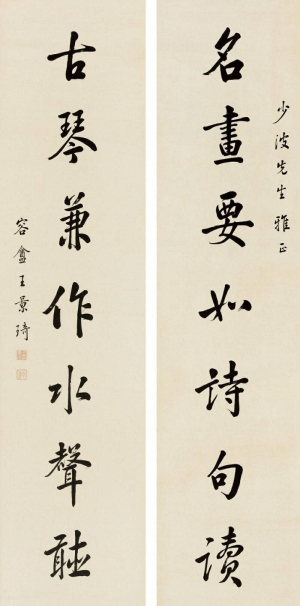 少波先生雅正
名畫要如詩句讀
古琴兼作水聲聴
容盦王景琦